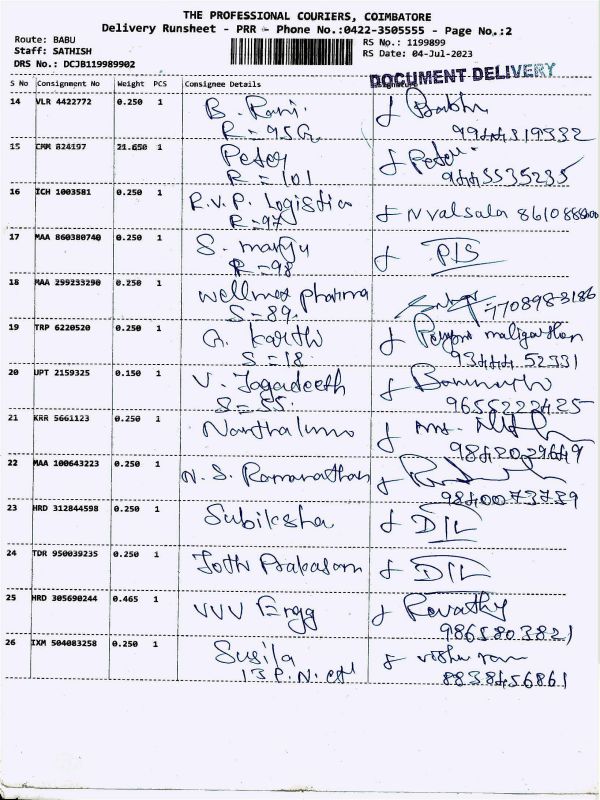 THE PROFESSIONAL COURIERS, COIMBATORE
Delivery Runsheet - PRR - Phone No.:0422-3505555 - Page No.:2
Route: BABU
RS No.: 1199899
Staff: SATHISH
RS Date: 04-Jul-2023
DRS No.: DCJB119989902
DOCUMENT DELIVERY
S No Consignment No Weight PCS Consignee Details
14 VLR 4422772 0.250 1 B. Rani
R = 95G 9944319332
15 CMM 824197 21.650 1 Peter Peter
R = 101 9443535235
16 ICH 1003581 0.250 1 R.V.P. Logistics N Valsala
R = 97
17 MAA 860380740 0.250 1 S. manju
R = 98
18 MAA 299233290 0.250 1 wellmed pharma 7708983186
S = 89.
19 TRP 6220520 0.250 1 G. Karthi
S = 18. 93444 52331
20 UPT 2159325 0.150 1 V. Jagadeeth
S = 55. 9655222425
21 KRR 5661123 0.250 1
9842029649
22 MAA 100643223 0.250 1 N. S. Ramanathan
9840073739
23 HRD 312844598 0.250 1 Subiksha D/L
24 TDR 950039235 0.250 1 Jothi Prakasam D/L
25 HRD 305690244 0.465 1 VVV Engg Revathy
9865803821
26 IXM 504083258 0.250 1 Susila
13 P. N. 8838456861